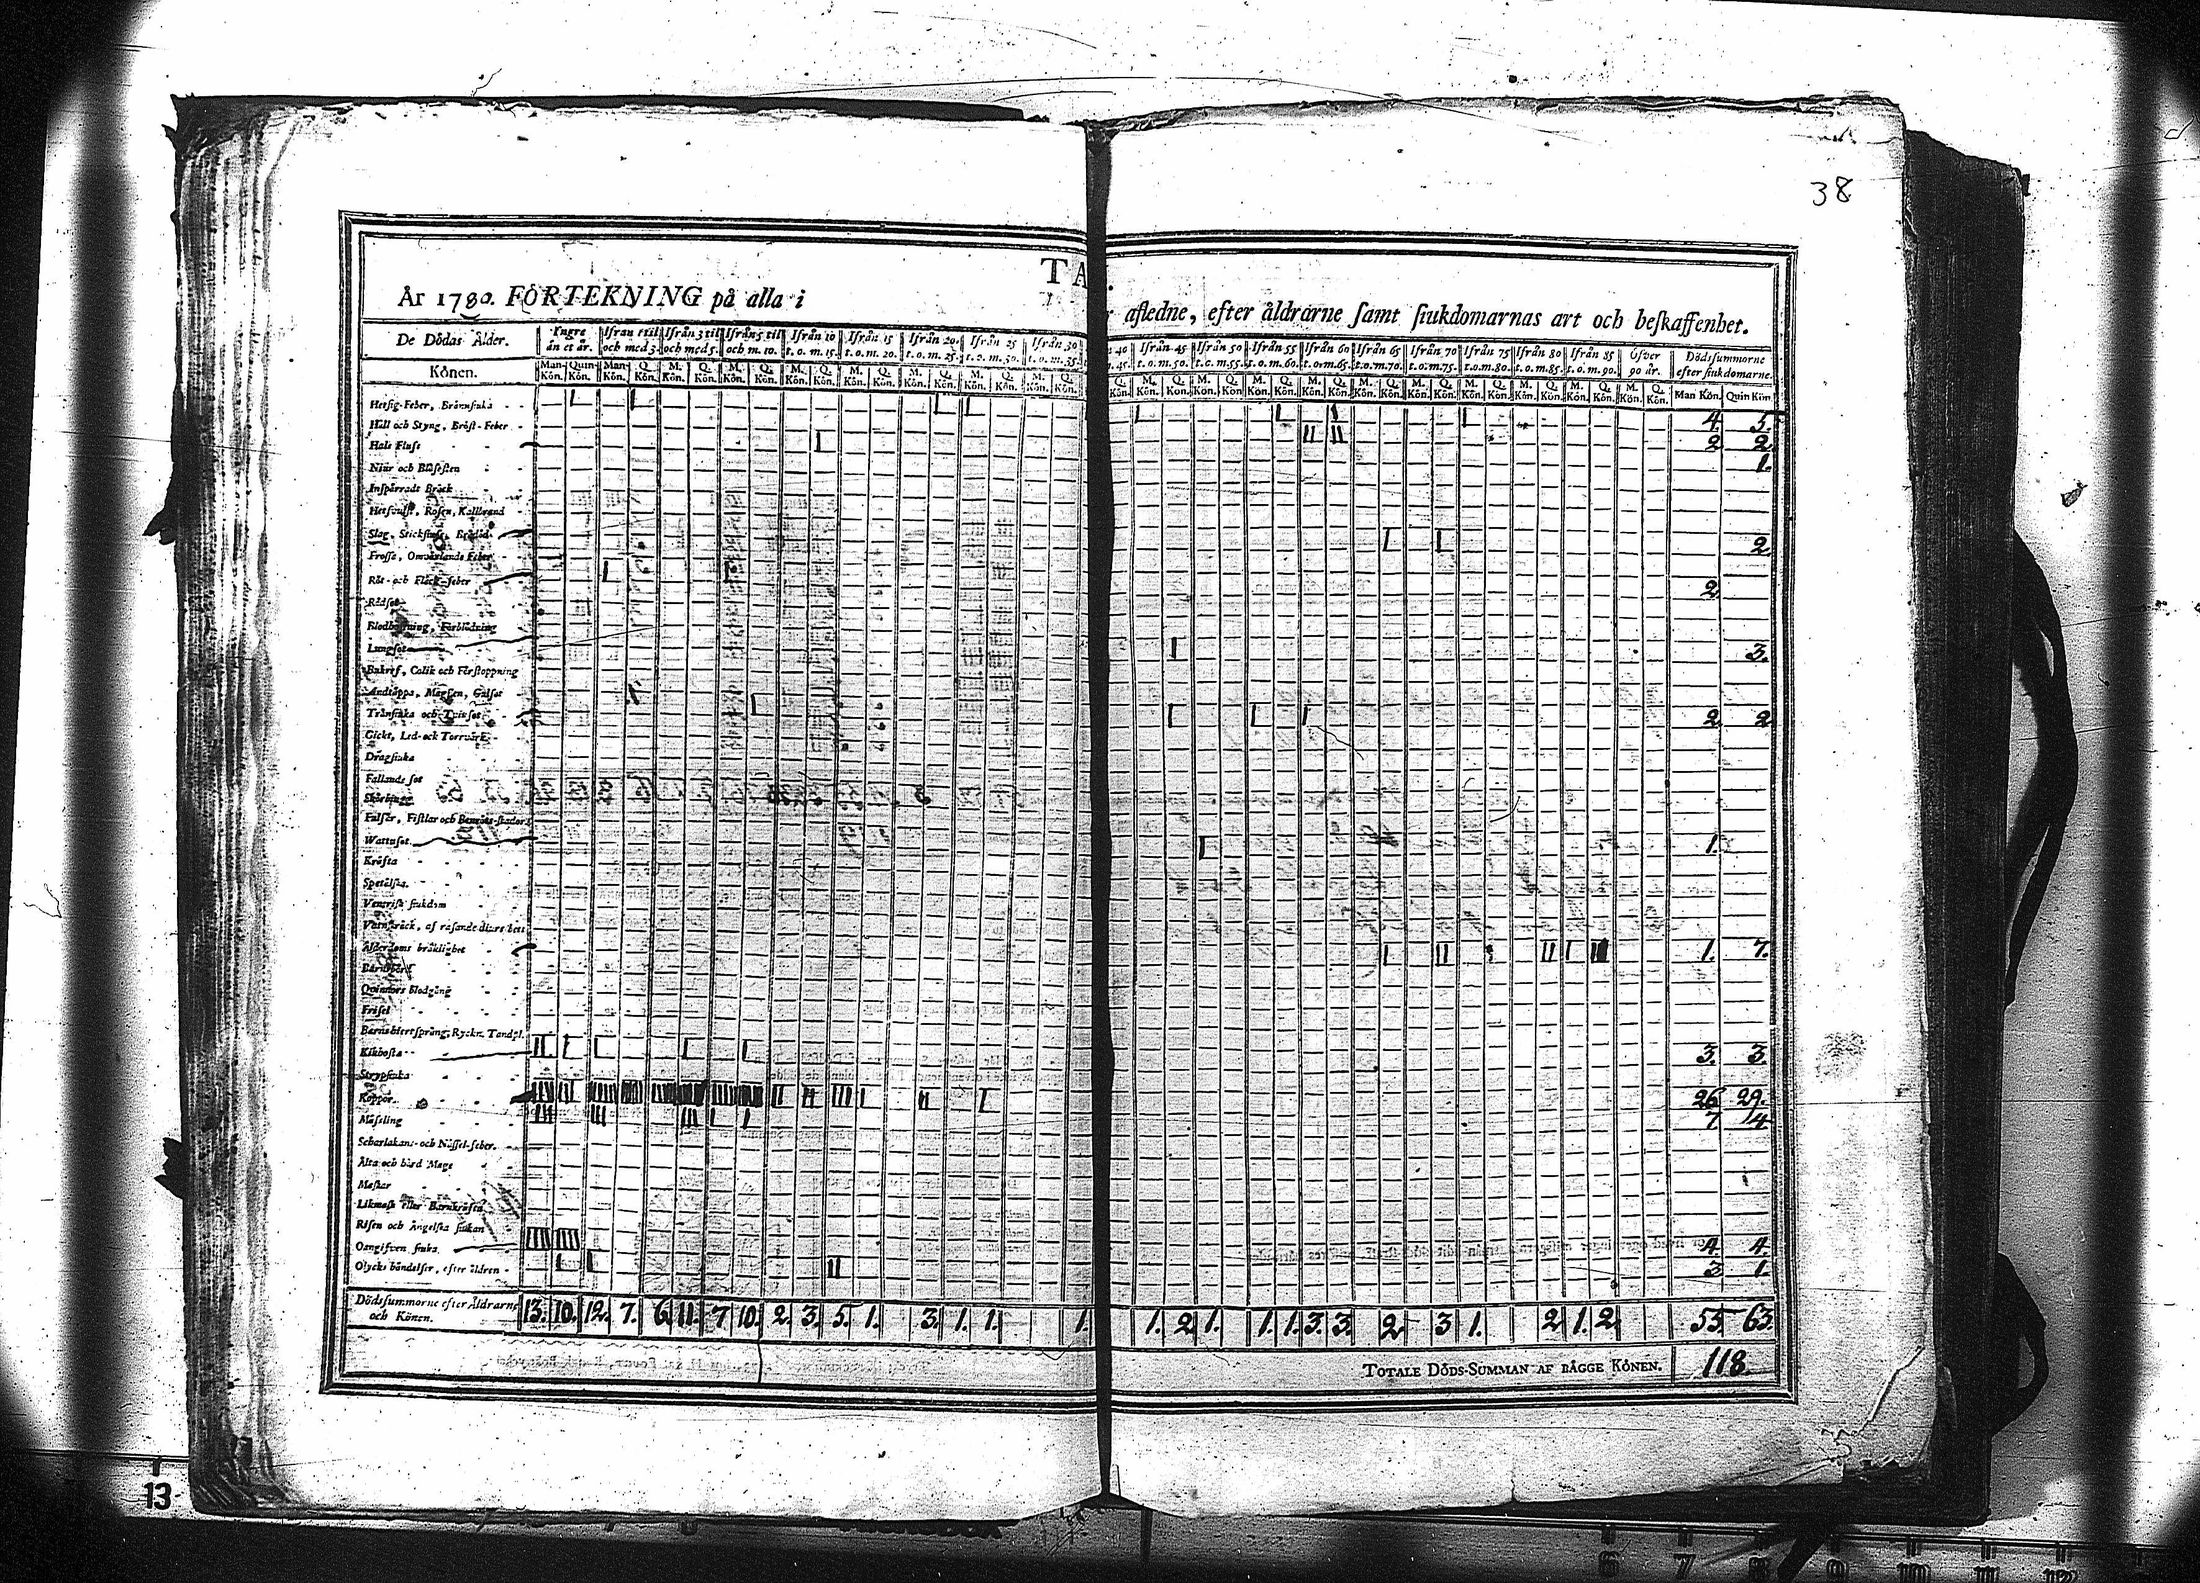 38
TA
År 1780. FÖRTEKNING på alla i
afledne, efter åldrarne samt siukdomarnas art och beskaffenhet.
De Dödas Ålder. Yngre än et år. Ifrån 1 til och med 3. Ifrån 3 til och med 5. Ifrån 5 til och m. 10. Ifrån 10 t. o. m. 15. Ifrån 15 t. o. m. 20. Ifrån 20 t. o. m. 25. Ifrån 25 t. o. m. 30. Ifrån 30 t. o. m. 35. Ifrån 45 t. o. m. 50. Ifrån 50 t. o. m. 55. Ifrån 55 t. o. m. 60. Ifrån 60 t. o. m. 65. Ifrån 65 t. o. m. 70. Ifrån 70 t. o. m. 75. Ifrån 75 t. o. m. 80. Ifrån 80 t. o. m. 85. Ifrån 85 t. o. m. 90. Öfver 90 år. Dödssummorne efter siukdomarne.
Könen. Man Kön. Quin Kön.
Hetsig-Feber, Brännsiuka 4. 5.
Håll och Styng, Bröst-Feber 2 2
Hals Fluss 1.
Niur och Blåsesten
Inspärradt Bråck
Hetsvulst, Rosen, Kallbrand
Slag, Stickfluss, 2
Frossa, Omväxlande Feber
Röt- och Fläck-feber 2
Rödsot
Blodbortning, Förblödning
Lungsot 3.
Bukref, Colik och Förstoppning
Andtäppa, Magsien, Gulsot
Trånsiuka och Tvinsot 2 2
Gickt, Led- och Torrvärk
Dragsiuka
Fallande sot
Skörbiugg
Fulsår, Fistlar och Benröts-skador
Wattusot 1.
Kräfta
Spetälska
Venerisk siukdom
Vatnskräck, af rasande diurs bett
Ålderdoms bräklighet 1. 7.
Barnsbörd
Quinnors blodgång
Frisel
Barns hiertsprång, Ryckn. Tandsl.
Kikhosta 3. 3.
Strypsiuka
Koppor 26 29.
Mässling 7 4
Scharlakans- och Nässel-feber
Älta och hård Mage
Maskar
Likmask eller Barnkräfta
Risen och Ängelska siukan
Oangifven siuka 4. 4.
Olycks händelser, efter åldren 3 1.
Dödssummorne efter Åldrarne och Könen. 13. 10. 12. 7. 6. 11. 7 10. 2. 3. 5. 1. 3. 1. 1. 1. 1. 2. 1. 1. 1. 3. 3. 2 3 1. 2 1. 2. 55. 63.
TOTALE DÖDS-SUMMAN AF BÄGGE KÖNEN. 118.
13